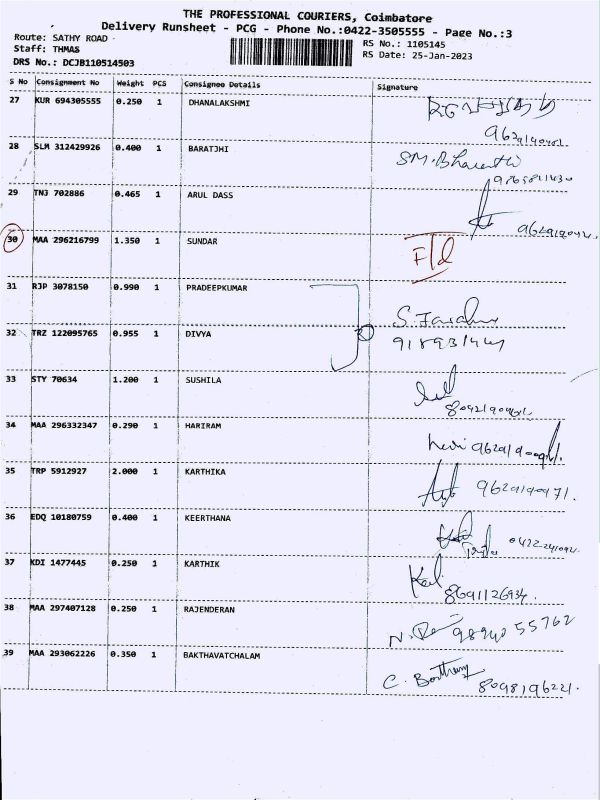 THE PROFESSIONAL COURIERS, Coimbatore
Delivery Runsheet - PCG - Phone No.:0422-3505555 - Page No.:3
Route: SATHY ROAD
RS No.: 1105145
Staff: THMAS
RS Date: 25-Jan-2023
DRS No.: DCJB110514503
S No Consignment No Weight PCS Consignee Details Signature
27 KUR 694305555 0.250 1 DHANALAKSHMI
28 SLM 312429926 0.400 1 BARATJHI
SM.Bharathi
29 TNJ 702886 0.465 1 ARUL DASS
30 MAA 296216799 1.350 1 SUNDAR
F/d
31 RJP 3078150 0.990 1 PRADEEPKUMAR
32 TRZ 122095765 0.955 1 DIVYA
33 STY 70634 1.200 1 SUSHILA
34 MAA 296332347 0.290 1 HARIRAM
35 TRP 5912927 2.000 1 KARTHIKA
36 EDQ 10180759 0.400 1 KEERTHANA
37 KDI 1477445 0.250 1 KARTHIK
8691126934.
38 MAA 297407128 0.250 1 RAJENDERAN
98940 55762
39 MAA 293062226 0.350 1 BAKTHAVATCHALAM
8098196221.